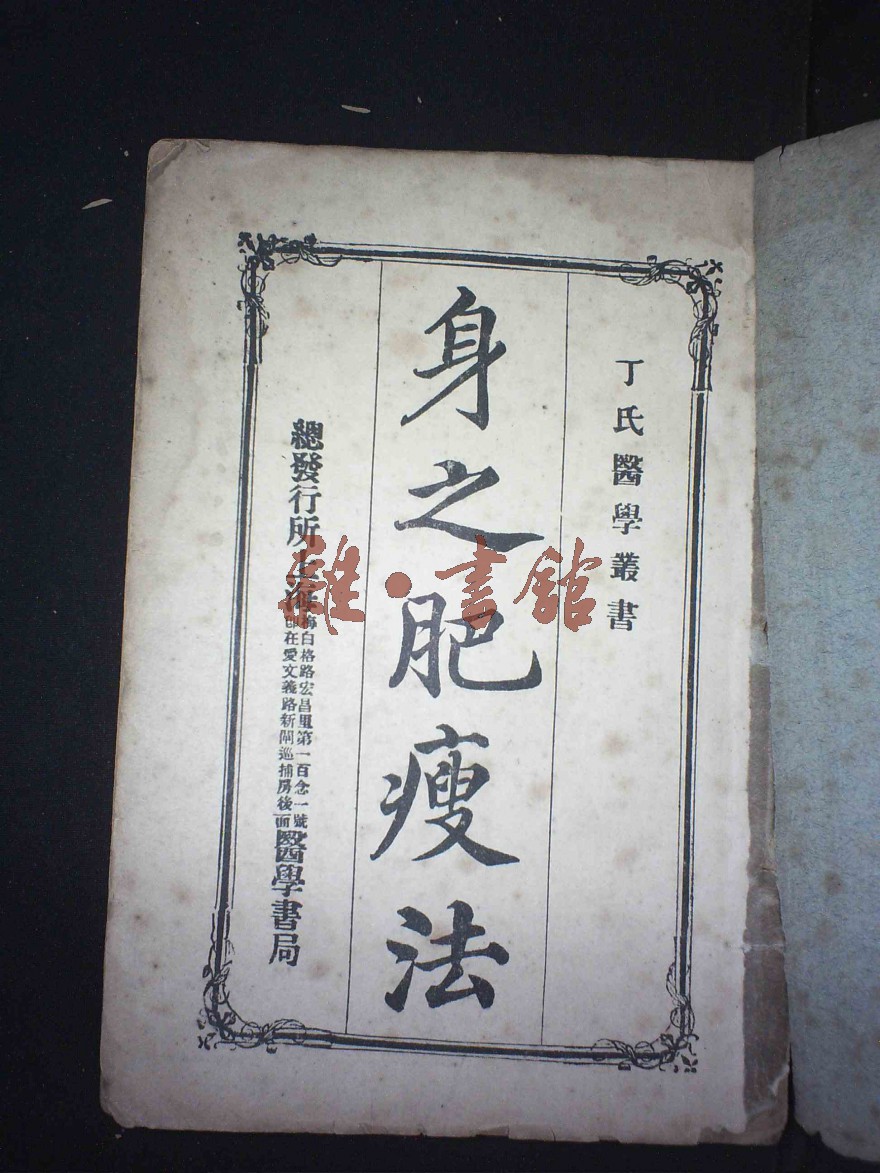 丁氏醫學叢書
身之肥瘦法
總發行所上海
梅白格路宏昌里第一百念一號
卽在愛文義路新閘巡捕房後面
醫學書局
雜·書館